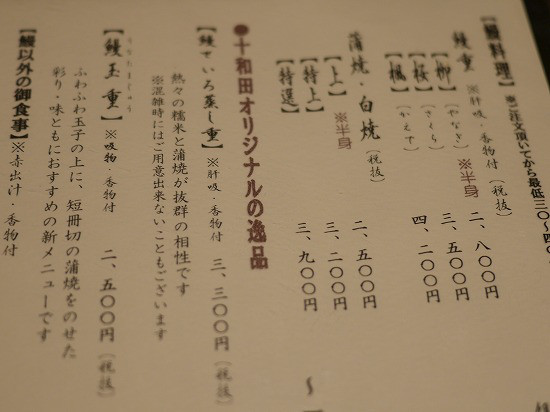 【鰻料理】㊟ご注文頂いてから最低三〇〜四〇
鰻重 ※肝吸・香物付（税抜）
【柳】（やなぎ）※半身 二、八〇〇円
【桜】（さくら） 三、五〇〇円
【楓】（かえで） 四、二〇〇円
蒲焼・白焼（税抜）
【上】※半身 二、五〇〇円
【特上】 三、二〇〇円
【特選】 三、九〇〇円 〜
●十和田オリジナルの逸品
【鰻せいろ蒸し重】※肝吸・香物付 三、三〇〇円（税抜）
熱々の糯米と蒲焼が抜群の相性です
※混雑時にはご用意出来ないこともございます
【鰻玉重】※吸物・香物付 二、五〇〇円（税抜）
ふわふわ玉子の上に、短冊切の蒲焼をのせた
彩り・味ともにおすすめの新メニューです
【鰻以外の御食事】※赤出汁・香物付